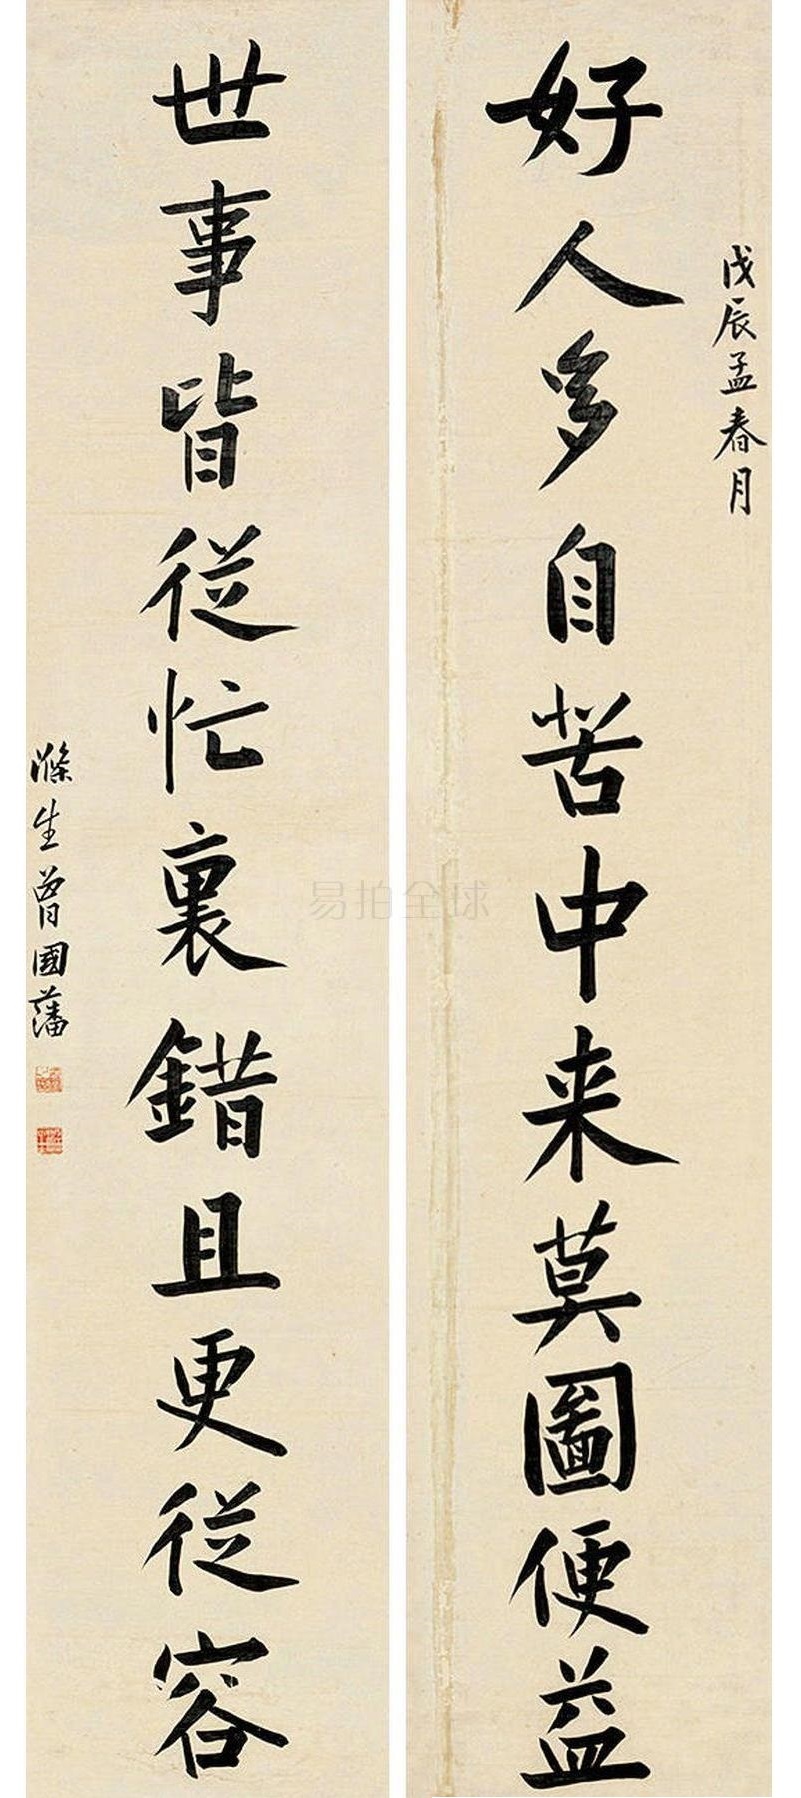 戊辰孟春月
好人多自苦中来莫圖便益
世事皆從忙裏錯且更從容
滌生曾國藩
易拍全球